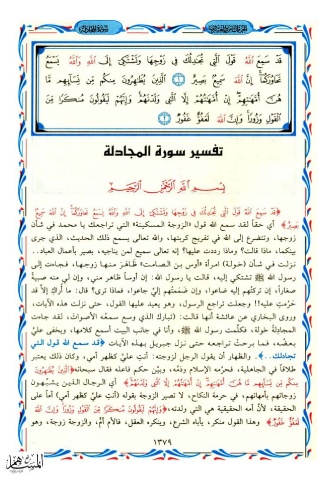 سورة المجادلة
قَدْ سَمِعَ اللَّهُ قَوْلَ الَّتِي تُجَادِلُكَ فِي زَوْجِهَا وَتَشْتَكِي إِلَى اللَّهِ وَاللَّهُ يَسْمَعُ
تَحَاوُرَكُمَا إِنَّ اللَّهَ سَمِيعٌ بَصِيرٌ ١ الَّذِينَ يُظَاهِرُونَ مِنكُم مِّن نِّسَائِهِم مَّا
هُنَّ أُمَّهَاتِهِمْ إِنْ أُمَّهَاتُهُمْ إِلَّا اللَّائِي وَلَدْنَهُمْ وَإِنَّهُمْ لَيَقُولُونَ مُنكَرًا مِّنَ
الْقَوْلِ وَزُورًا وَإِنَّ اللَّهَ لَعَفُوٌّ غَفُورٌ ٢
تفسير سورة المجادلة
بسم الله الرحمن الرحيم
﴿قَدْ سَمِعَ اللَّهُ قَوْلَ الَّتِي تُجَادِلُكَ فِي زَوْجِهَا وَتَشْتَكِي إِلَى اللَّهِ وَاللَّهُ يَسْمَعُ تَحَاوُرَكُمَا إِنَّ اللَّهَ سَمِيعٌ
بَصِيرٌ﴾ أي حقاً لقد سمع الله قول «الزوجة المسكينة» التي تراجعك يا محمد في شأن
زوجها، وتتضرع إلى الله في تفريج كربتها، والله تعالى يسمع ذلك الحديث، الذي جرى
بينكما، ماذا قالت؟ وماذا رددت عليها؟ إنه تعالى سميع لمن يناجيه، بصير بأعمال العباد..
نزلت في شأن (خولة) امرأة «أوس بن الصامت» ظاهَرَ منها زوجها، فجاءت إلى
رسول الله ﷺ تشتكي إليه، قالت يا رسول الله: إن أوساً ظاهر مني، وإن لي منه صبية
صغاراً، إن تركتُهم إليه ضاعوا، وإن ضممتُهم إليَّ جاعوا، فماذا ترى؟ قال: ما أراكِ إلا قد
حَرُمتِ عليه!! وجعلت تراجع الرسول، وهو يعيد عليها القول، حتى نزلت هذه الآيات،
وروى البخاري عن عائشة أنها قالت: (تبارك الذي وسع سمعه الأصوات، لقد جاءت
المجادلةُ خولة، فكلّمت رسول الله ﷺ، وأنا في جانب البيت أسمع كلامها، ويخفى عليَّ
بعضُه، فما برحتْ تراجعه حتى نزل جبريل بهذه الآيات ﴿قد سمع الله قول التي
تجادلك..﴾. والظهار أن يقول الرجل لزوجته: أنتِ عليَّ كظهر أمي، وكان ذلك يعتبر
طلاقاً في الجاهلية، فحرّمه الإسلام وذمَّه، وبيَّن حكم فاعله فقال سبحانه ﴿الَّذِينَ يُظَاهِرُونَ
مِنكُم مِّن نِّسَائِهِم مَّا هُنَّ أُمَّهَاتِهِمْ إِنْ أُمَّهَاتُهُمْ إِلَّا اللَّائِي وَلَدْنَهُمْ﴾ أي الرجال الذين يشبّهون
زوجاتهم بأمهاتهم، في حرمة النكاح، لا تصير الزوجة بقوله (أنتِ عليَّ كظهر أمي) أماً على
الحقيقة، لأنَّ أمه الحقيقية هي التي ولدته، ﴿وَإِنَّهُمْ لَيَقُولُونَ مُنكَرًا مِّنَ الْقَوْلِ وَزُورًا وَإِنَّ اللَّهَ
لَعَفُوٌّ غَفُورٌ﴾ وهذا القول منكر، يأباه الشرع، وينكره العقل، فالأم أم، والزوجة زوجة، وهو
١٣٧٩